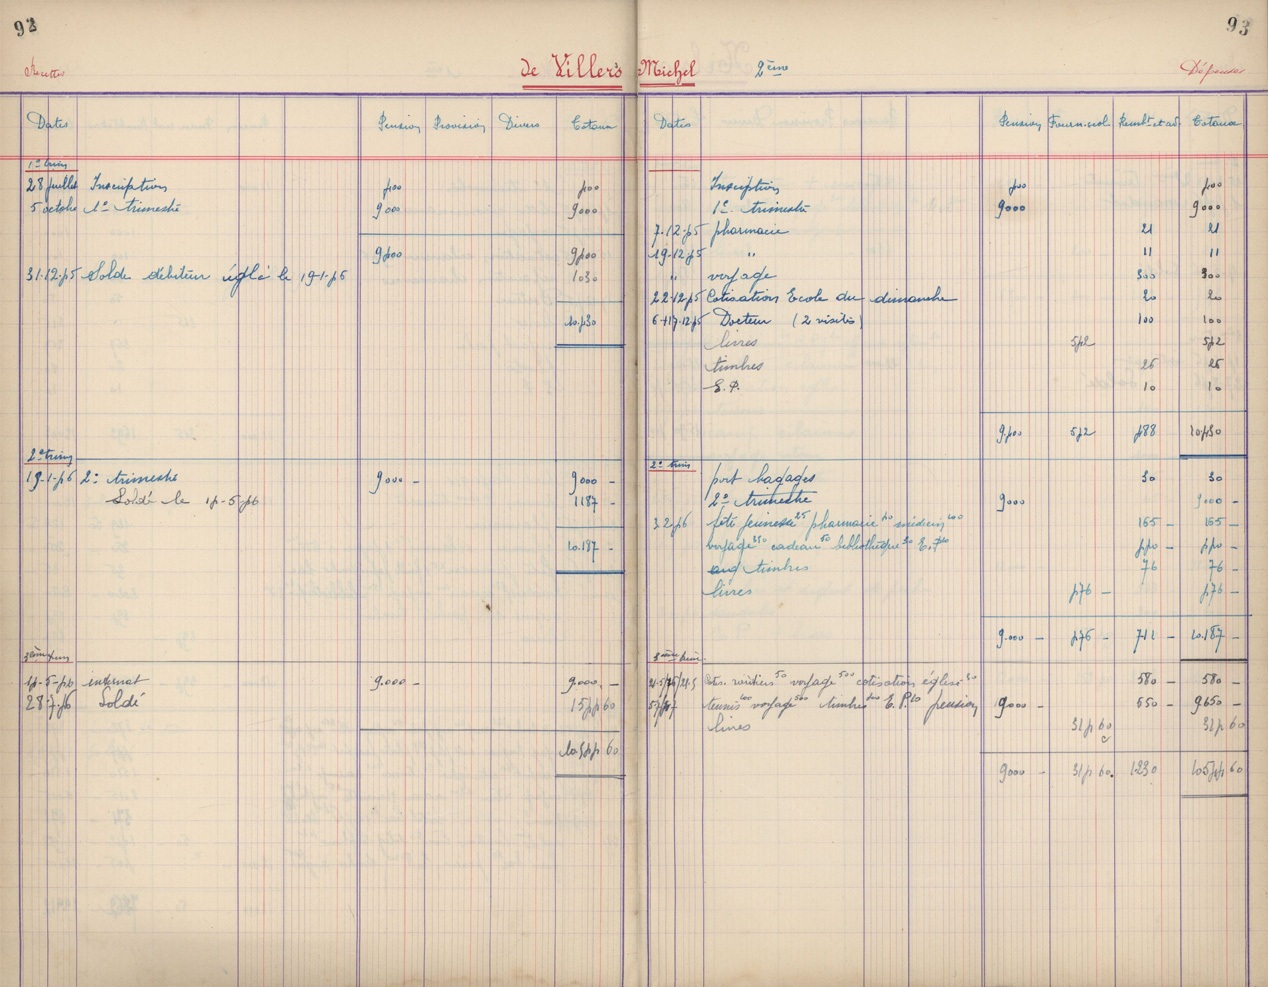 92
93
Recettes de Villers Michel 2ème Dépenses
Dates Pension Provision Divers Totaux
1er trim
28 juillet Inscription 400 400
5 octobre 1er trimestre 9000 9000
9400 9400
31-12-45 Solde débiteur réglé le 19-1-46 1030
10.430
2e trim
19-1-46 2e trimestre 9000 - 9000 -
Soldé le 14-5-46 1187 -
10.187 -
3ème trim
14-5-46 internat 9.000 - 9.000. -
28.7.46 Soldé 1544 60
10.544 60
Dates Pension Fourn.scol. Totaux
Inscription 400 400
1er trimestre 9000 9000
7.12.45 pharmacie 21 21
19.12.45 " 11 11
" voyage 300 300
22.12.45 Cotisation Ecole du dimanche 20 20
6+17.12.45 Docteur (2 visites) 100 100
livres 542 542
timbres 26 26
E.P. 10 10
9.400 542 488 10.430
2e trim
port bagages 30 30
2e trimestre 9000 9000 -
3.2.46 fête jeunesse 25 pharmacie 40 médecin 100 165 - 165 -
voyage cadeau 50 bibliothèque 440 - 440 -
timbres 76 76 -
livres 476 - 476 -
9.000 - 476 - 711 - 10.187 -
3ème trim.
voyage 500 cotisation église 30 580 - 580 -
tennis voyage timbres E.P. 10 pension 9000 - 650 - 9650 -
livres 314 60 314 60
9000 - 314 60. 1230 10544 60